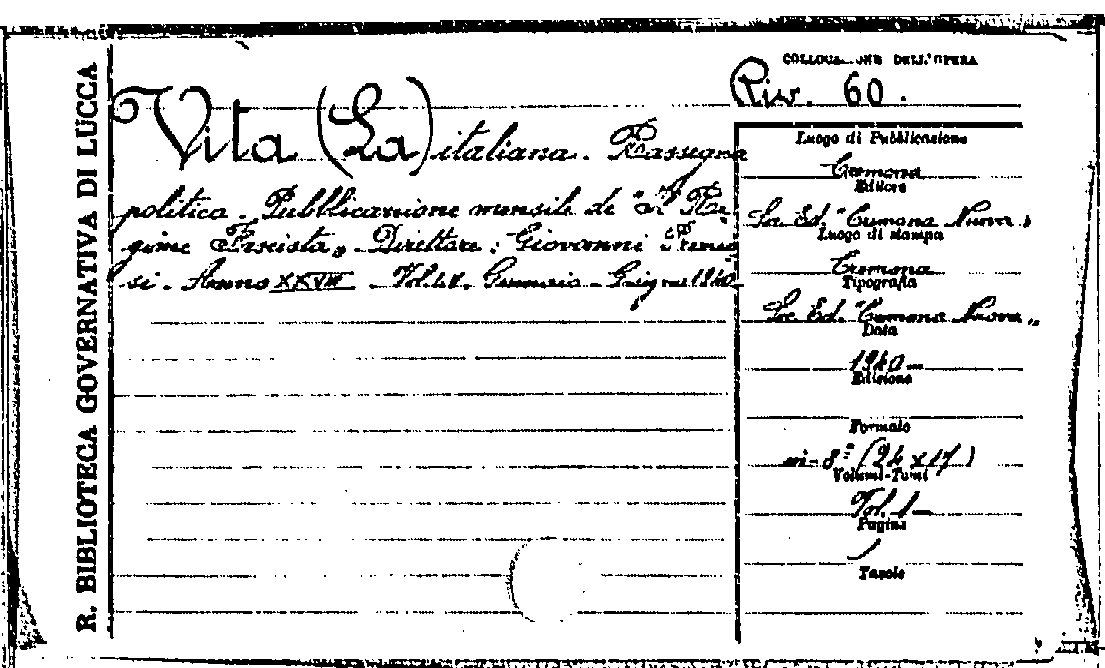 R. BIBLIOTECA GOVERNATIVA DI LUCCA
COLLOCAZIONE DELL'OPERA
Riv. 60.
Vita (La) italiana. Rassegna
politica. Pubblicazione mensile de "Il Re-
gime Fascista„ Direttore: Giovanni Prezio
si. Anno XXVIII. Vol. LV. Gennaio - Giugno 1940
Luogo di Pubblicazione
Cremona
Editore
Soc. Ed. "Cremona Nuova„
Luogo di stampa
Cremona
Tipografia
Soc. Ed. "Cremona Nuova„
Data
1940 -
Edizione
Formato
in-8° (24 x 17)
Volumi-Tomi
Vol. 1 -
Pagine
Tavole